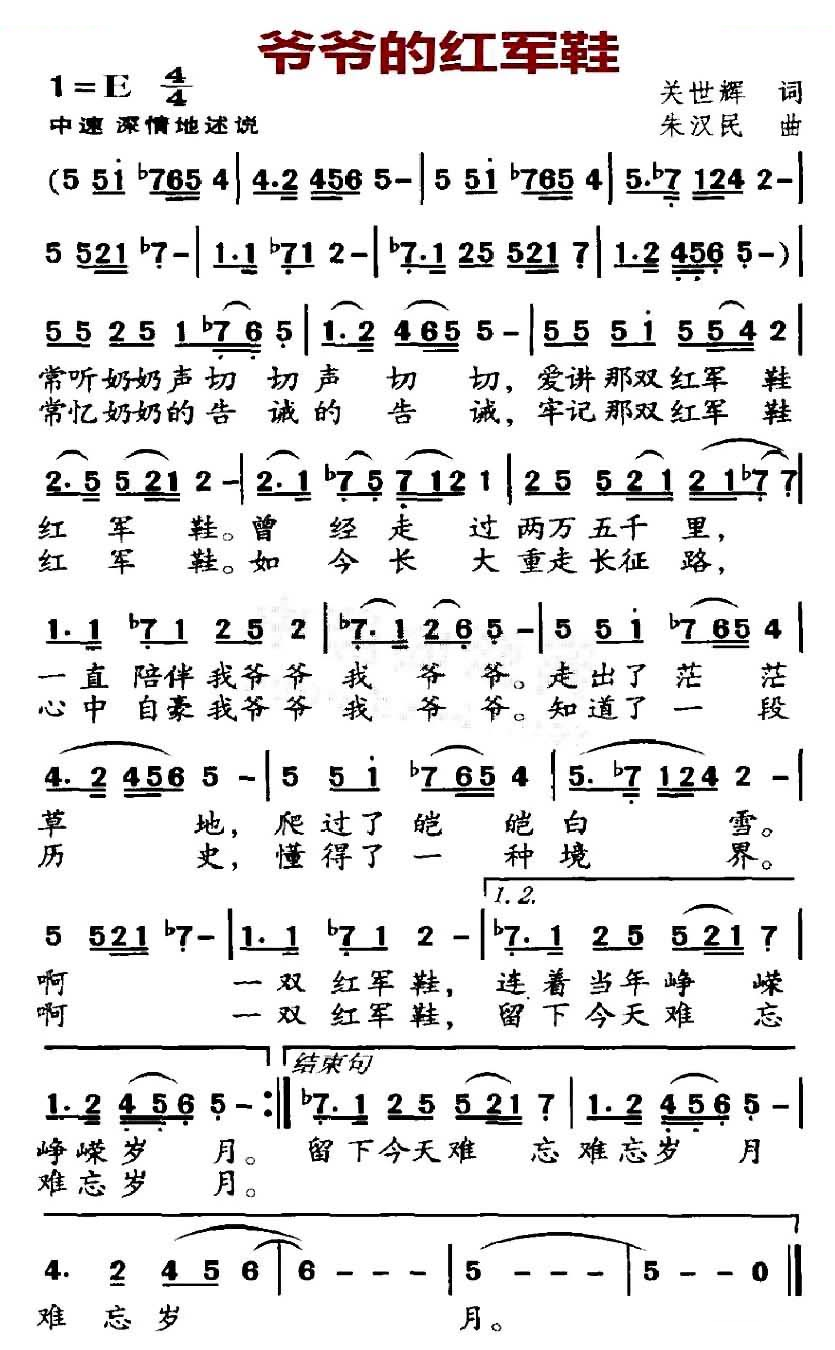 爷爷的红军鞋
1=E 4/4
关世辉 词
中速 深情地述说
朱汉民 曲
(5 51 ♭765 4 | 4.2 456 5- | 5 51 ♭765 4 | 5.♭7 124 2- |
5 521 ♭7- | 1.1 ♭71 2- | ♭7.1 25 521 7 | 1.2 456 5-) |
55 25 1 ♭76 5 | 1.2 465 5- | 55 51 554 2 |
常听奶奶声切 切声 切 切，爱讲那双红军 鞋
常忆奶奶的告 诫的 告 诫，牢记那双红军 鞋
2.5 521 2- | 2.1 ♭75 712 1 | 25 521 21♭7 7 |
红 军 鞋。曾 经 走 过 两万 五千 里，
红 军 鞋。如 今 长 大 重走 长征 路，
1.1 ♭71 25 2 | ♭7.1 26 5- | 5 51 ♭765 4 |
一直 陪伴 我爷 爷 我 爷 爷。走 出了 茫 茫
心中 自豪 我爷 爷 我 爷 爷。知 道了 一 段
4.2 456 5- | 5 51 ♭765 4 | 5.♭7 124 2- |
草 地，爬 过了 皑 皑 白 雪。
历 史，懂 得了 一 种 境 界。
1.2.
5 521 ♭7- | 1.1 ♭71 2- | ♭7.1 25 521 7 |
啊 一双 红军 鞋，连着 当年 峥 嵘
啊 一双 红军 鞋，留下 今天 难 忘
结束句
1.2 456 5- :‖ ♭7.1 25 521 7 | 1.2 456 5- |
峥嵘 岁 月。留下 今天 难 忘 难忘 岁 月
难忘 岁 月。
4. 2 456 | 6 - - - | 5 - - - | 5 - - 0 ‖
难 忘 岁 月。